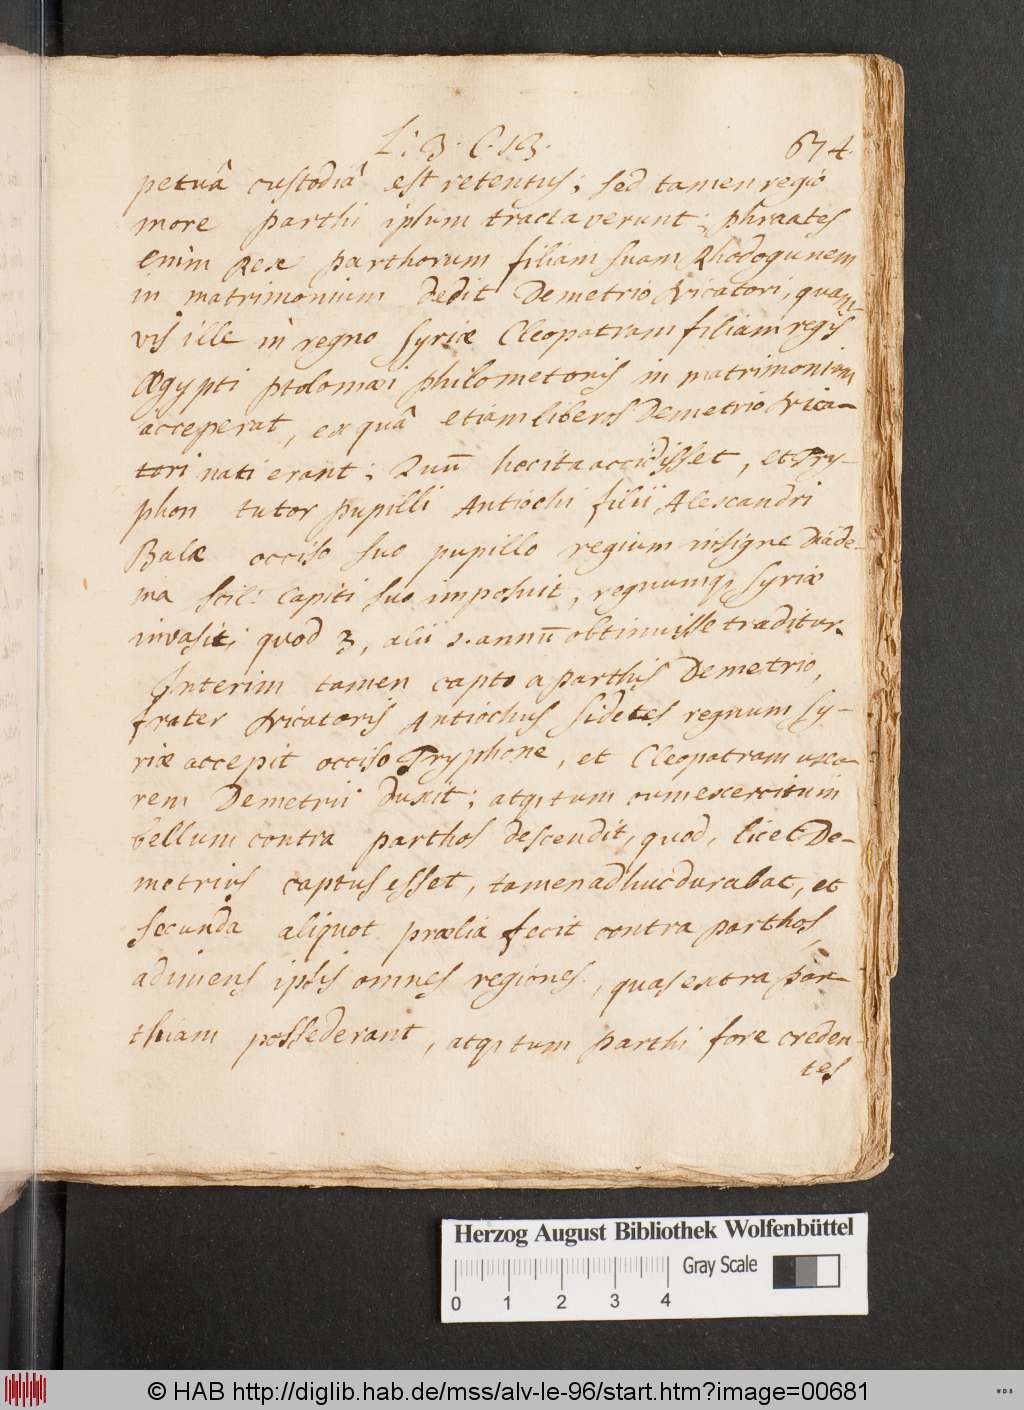 L: 3. C. 13. 674.
petuâ custodiâ est retentus; sed tamen regio
more parthi ipsum tractaverunt; phraates
enim Rex parthorum filiam suam Rhodogunem
in matrimonium dedit Demetrio Nicatori, quam-
vis ille in regno Syriæ Cleopatram filiam regis
Ægypti ptolomæi philometoris in matrimonium
acceperat, ex quâ etiam liberos Demetrio Nica-
tori nati erant; Quū hoc ita accidisset, et Try-
phon tutor pupilli Antiochi filii Alexandri
Balæ occiso suo pupillo regium insigne Diade-
ma scil: Capiti suo imposuit, regnumq; Syriæ
invasit; quod 3, alii 1. annū obtinuisse traditur.
Interim tamen capto a parthis Demetrio,
frater Nicatoris Antiochus Sidetes regnum Sy-
riæ accepit occiso Tryphone, et Cleopatram uxo-
rem Demetrii duxit; atq; tum cum exercitu in
bellum contra parthos descendit, quod, licet De-
metrius captus esset, tamen adhuc durabat, et
secunda aliquot prælia fecit contra parthos,
adimens ipsis omnes regiones, quas extra par-
thiam possederant, atq; tum parthi fore creden-
tes
Herzog August Bibliothek Wolfenbüttel
Gray Scale
0 1 2 3 4
© HAB http://diglib.hab.de/mss/alv-le-96/start.htm?image=00681